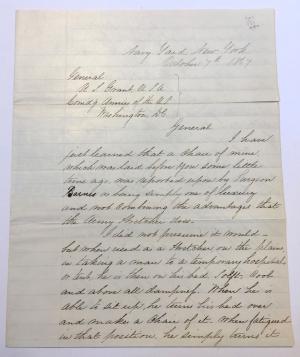 Navy Yard New York
October 7th 1867
General
U. S. Grant U.S.A
Comdg Armies of the U.S.
Washington D.C.
General
I have
just learned that a Chair of mine
which was laid before you some little
time ago, was reported upon by Surgeon
Barnes as being simply one of luxury
and not combining the advantages that
the Army Stretcher does.
I did not presume it would—
but when used as a Stretcher on the plains,
in taking a man to a temporary hospital,
or tent, he is then on his bed Soft. Cool
and above all dampproof. When he is
able to set up, he turns his bed over
and makes a Chair of it. When fatigued
in that position he simply turns it